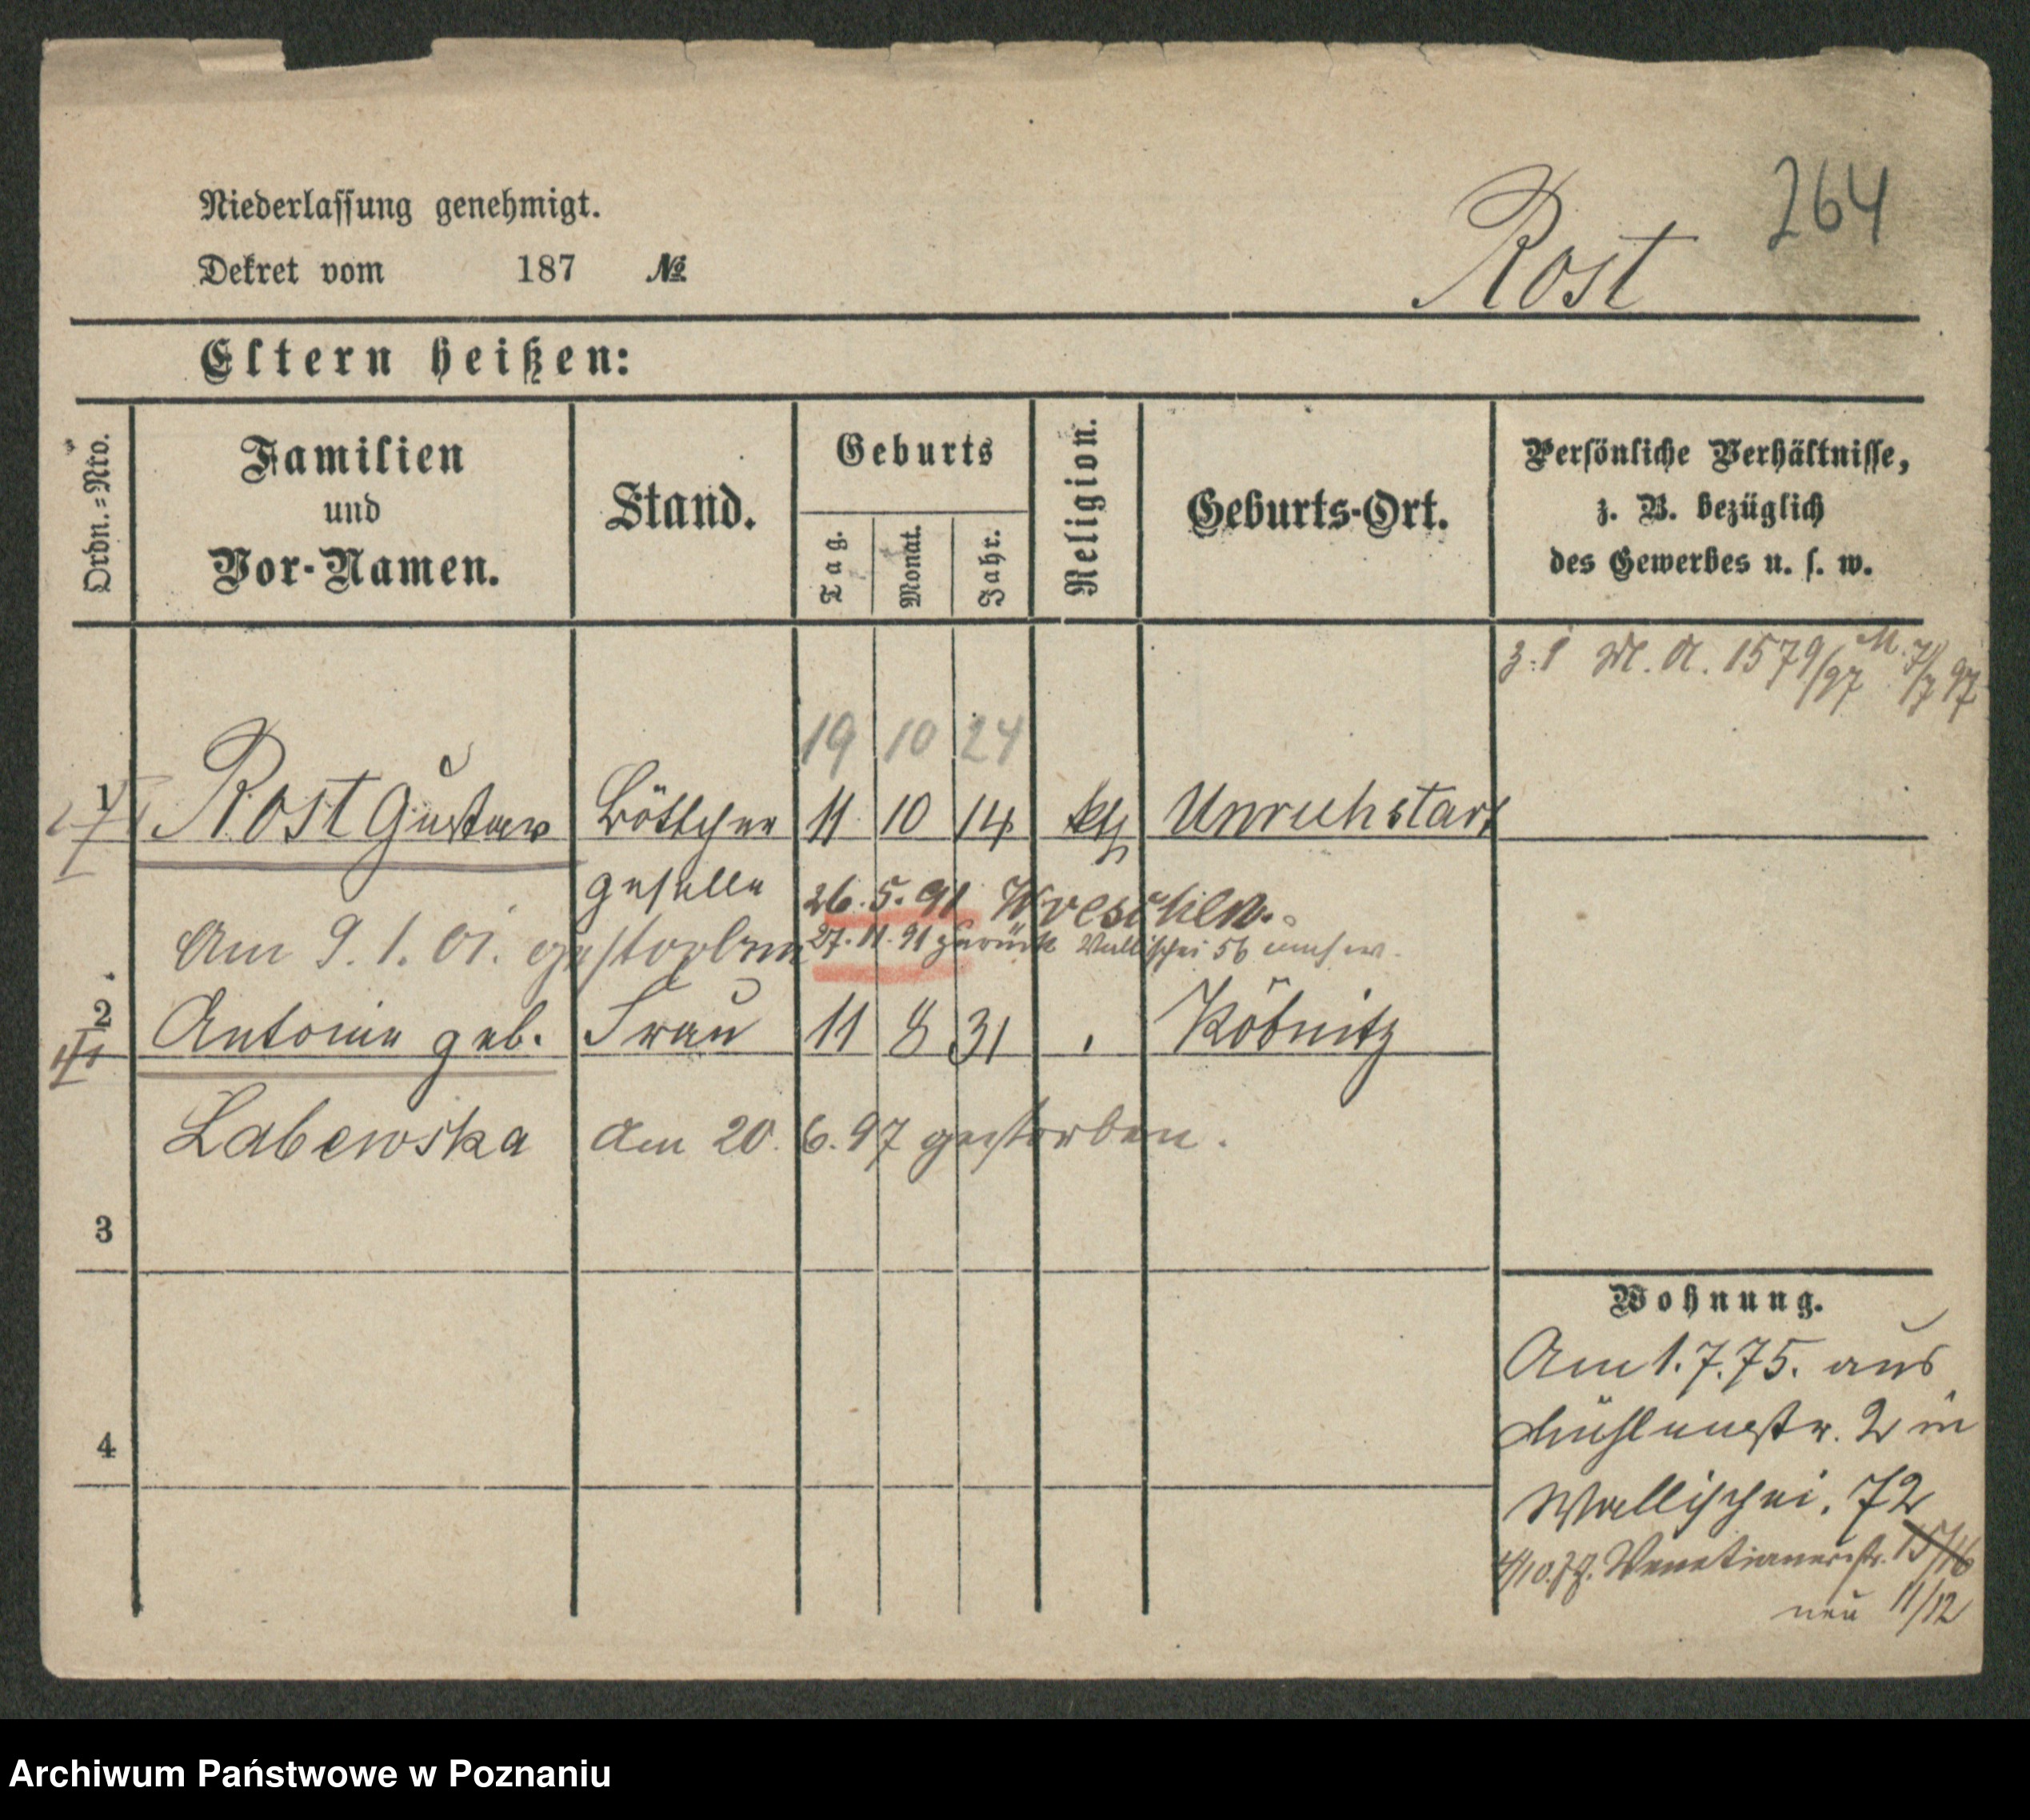 264
Niederlassung genehmigt.
Rost
Dekret vom 187 №
Eltern heißen:
Ordn.=Nro.
Familien
und
Vor-Namen.
Stand.
Geburts
Tag.
Monat.
Jahr.
Religion.
Geburts-Ort.
Persönliche Verhältnisse,
z. B. bezüglich
des Gewerbes u. s. w.
M. A. 1579/97 M. 7/7 97
19 10 24
1 Rost Gustav Böttcher 11 10 14 kth Unruhstart
geselle 26. 5. 91 Wreschen.
Am 9. 1. 01. gestorben 27. 11. 91 zurück Wallischei 56
2 Antonie geb. Frau 11 8 31 Köbnitz
Labewska am 20. 6. 97 gestorben.
3
4
Wohnung.
Am 1. 7. 75. aus
Mühlenstr. 2 in
Wallischei. 72
Venetianerstr. 15/16
neu 11/12
Archiwum Państwowe w Poznaniu